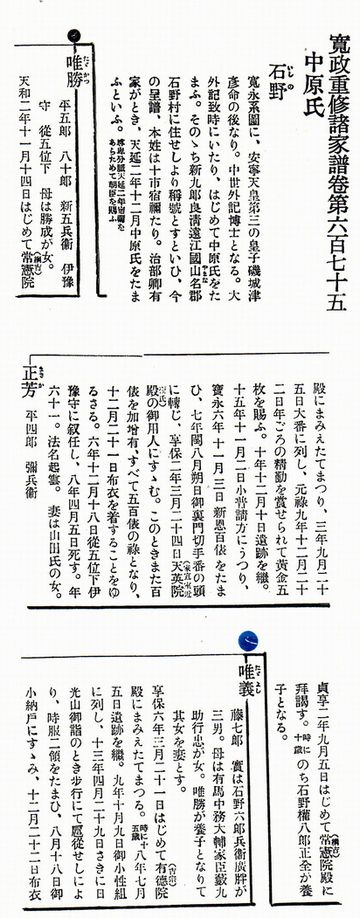 寬政重修諸家譜卷第六百七十五
中原氏
石野 いしの
寬永系圖に、安寧天皇第三の皇子磯城津
彥命の後なり。中世外記博士となる。大
外記致時にいたり、はじめて中原氏をた
まふ。そのゝち新九郎良淸遠江國山名郡
石野村に住せしより稱號とすといひ、今
の呈譜、本姓は十市宿禰たり。治部卿有
家がとき、天延二年十二月中原氏をたま
ふといふ。尊卑分脈天延二年宿禰をあらためて朝臣を賜ふ
唯勝 たゞかつ
平五郎 八十郎 新五兵衞 伊豫
守 從五位下 母は勝成が女。
天和二年十一月十四日はじめて常憲院(綱吉)
殿にまみえたてまつり、三年九月二十
五日大番に列し、元祿九年十二月二十
二日年ごろの精勤を賞せられて黃金五
枚を賜ふ。十年十二月十日遺跡を繼。
十五年十一月二日小普請方にうつり、
寶永六年十一月三日新恩百俵をたま
ひ、七年閏八月朔日御裏門切手番の頭
に轉じ、享保二年三月二十四日天英院(家宣室近衞氏)
殿の御用人にすゝむ。このときまた百
俵を加增有、すべて五百俵の祿となり、
十二月二十一日布衣を着することをゆ
るさる。六年十二月十八日從五位下伊
豫守に叙任し、八年四月五日死す。年
六十一。法名起雲。妻は山田氏の女。
正芳 まさか
平四郎 彌兵衞
貞享二年九月五日はじめて常憲院(綱吉)殿に
拜謁す。時に十歲 のち石野權八郎正全が養
子となる。
唯義 たゞよし
藤七郎 實は石野六郎兵衞廣胖が
三男。母は有馬中務大輔家臣藪九
助行忠が女。唯勝が養子となりて
其女を妻とす。
享保六年三月二十一日はじめて有德院(吉宗)
殿にまみえたてまつる。時に十五歲 八年七月
五日遺跡を繼。九年十月九日御小性組
に列し、十三年四月二十九日さきに日
光山御詣のとき步行にて扈從せしによ
り、時服二領をたまひ、八月十八日御
小納戶にすゝみ、十二月二十二日布衣